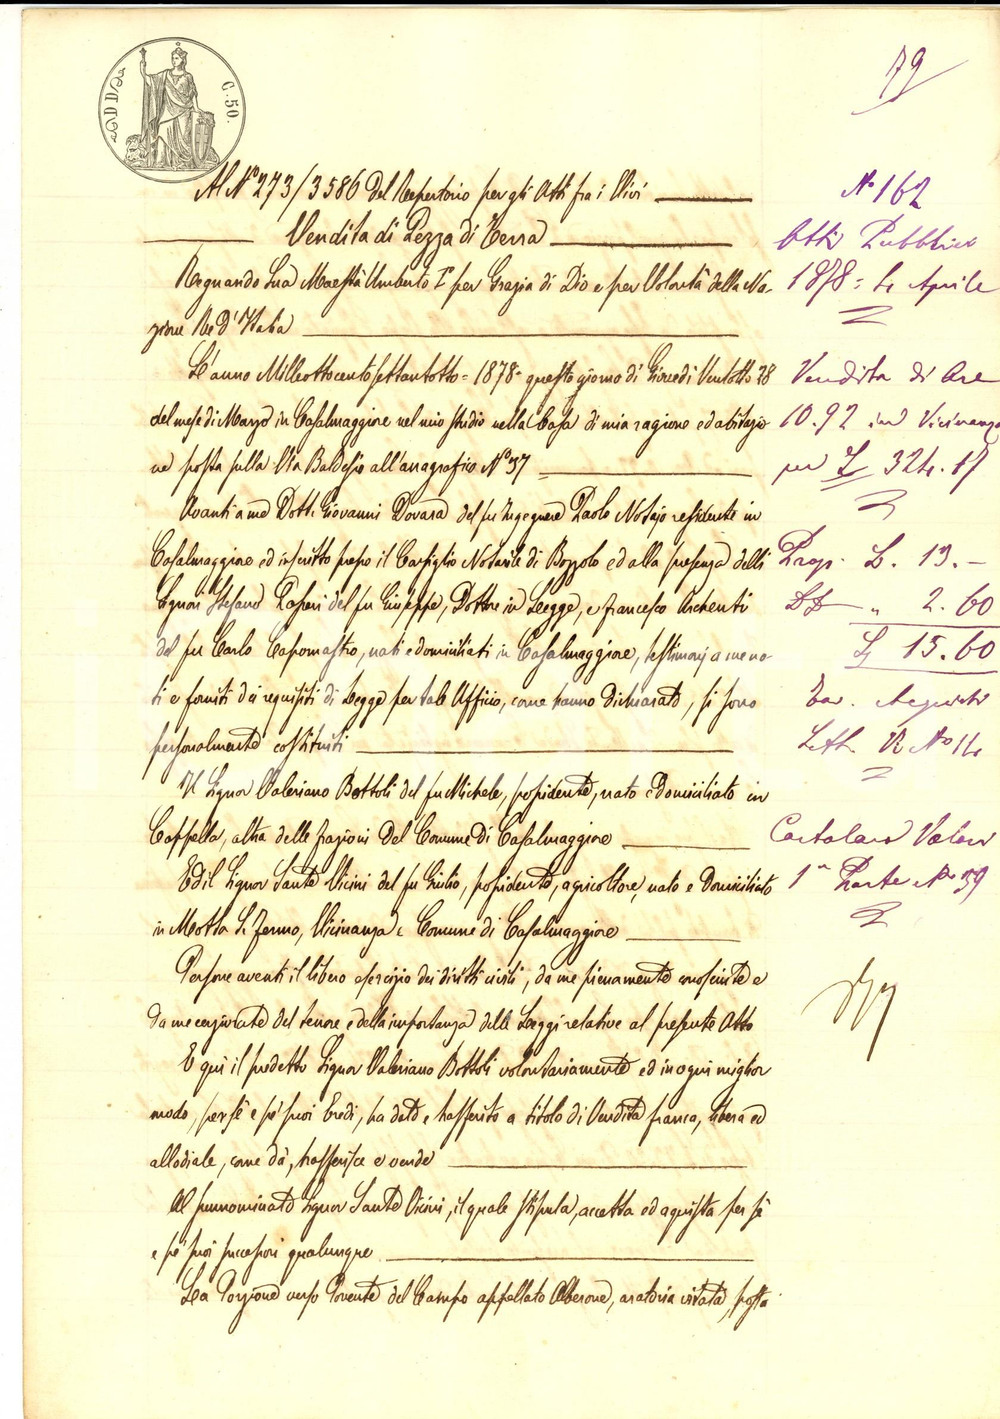 C. 50.
79
Al N° 273/3586 del Repertorio per gli Atti fra i Vivi
Vendita di Pezza di Terra
Regnando Sua Maestà Umberto I° per Grazia di Dio e per Volontà della Na-
zione Re d'Italia
L'anno Milleottocento settantotto = 1878 = questo giorno di Giovedì Ventotto 28
del mese di Marzo in Casalmaggiore nel mio studio nella Casa di mia ragione ed abitazio-
ne posta sulla Via Baldesio all'anagrafico N° 37
Avanti a me Dott. Giovanni Dovara del fu Ingegnere Paolo Notajo residente in
Casalmaggiore ed inscritto presso il Consiglio Notarile di Bozzolo ed alla presenza delli
Signori Stefano Raperi del fu Giuseppe, Dottore in Legge, e Francesco Archenti
del fu Carlo Capomastro, nati e domiciliati in Casalmaggiore, testimonj a me no-
ti e forniti dei requisiti di Legge per tale Ufficio, come hanno dichiarato, si sono
personalmente costituiti
Il Signor Valeriano Bottoli del fu Michele, possidente, nato e domiciliato in
Cappella, altra delle frazioni del Comune di Casalmaggiore
Ed il Signor Sante Vicini del fu Giulio, possidente, agricoltore, nato e domiciliato
in Motta S. Fermo, Vicinanza e Comune di Casalmaggiore
Persone aventi il libero esercizio dei diritti civili, da me pienamente conosciute e
da me cerziorate del tenore e della importanza delle Leggi relative al presente Atto
E qui il predetto Signor Valeriano Bottoli volontariamente ed in ogni miglior
modo, per sè e pe' suoi Eredi, ha dato e trasferito a titolo di Vendita franca, libera ed
allodiale, come dà, trasferisce e vende
Al prenominato Signor Sante Vicini, il quale stipula, accetta ed acquista per sè
e pe' suoi successori qualunque
La Porzione verso Ponente del Campo appellato Alberone, aratoria vitata, posta
N° 162
Atti Pubblici
1878 = 4 Aprile
Vendita di Are
10.92 in Vicinanza
per L 324.17
Prop. L. 13.–
DD " 2.60
L 15.60
N° 14
Valori
1ª Parte N° 39